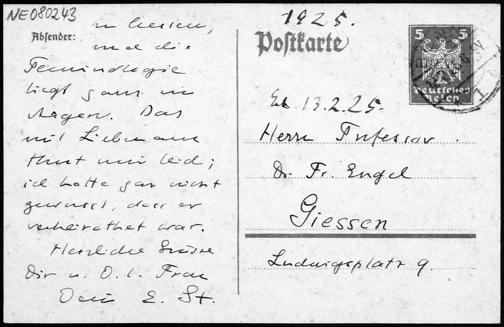 NE080243
1925.
Absender:
Postkarte
5 5
Deutsches
Reich
n lassen,
und die
Terminologie
liegt ganz im
Argen. Das
mit Liebmann
thut mir leid;
ich hatte gar nicht
gewusst, dass er
verheirathet war.
Herzliche Grüsse
Dir u. D. l. Frau
Dein E. St.
13.2.25.
Herrn Professor
Dr. Fr. Engel
Giessen
Ludwigsplatz 9.